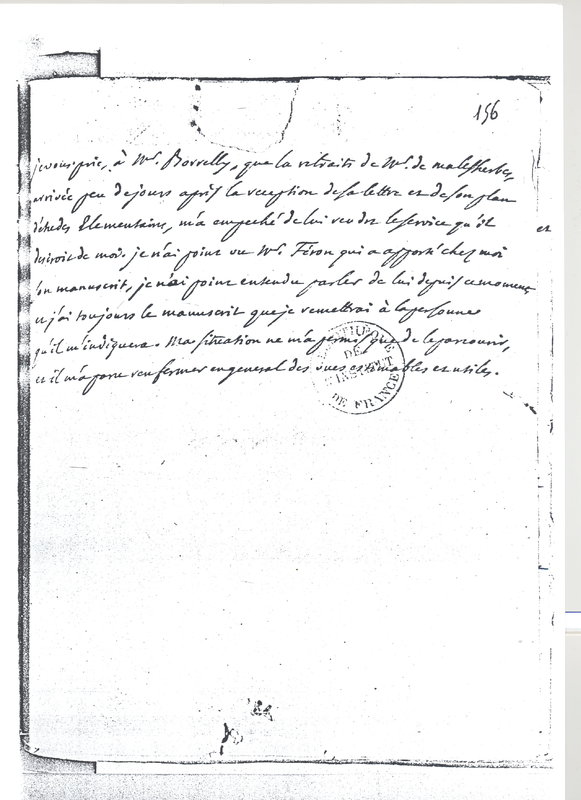 156
je vous prie, à Mr. Borrelly, que la retraite de Mr. de malesherbes,
arrivée peu de jours après la reception de sa lettre et de son plan
d'etudes Elementaires, m'a empeché de lui rendre le service qu'il
desiroit de moi. je n'ai point vu Mr. Féron qui a apporté chez moi
son manuscrit, je n'ai point entendu parler de lui depuis ce moment
et
et j'ai toujours le manuscrit que je remettrai à la personne
qu'il m'indiquera. Ma situation ne m'a permis que de le parcourir,
et il m'a paru renfermer en general des vues estimables et utiles.
BIBLIOTHEQUE
DE
L'INSTITUT
DE FRANCE